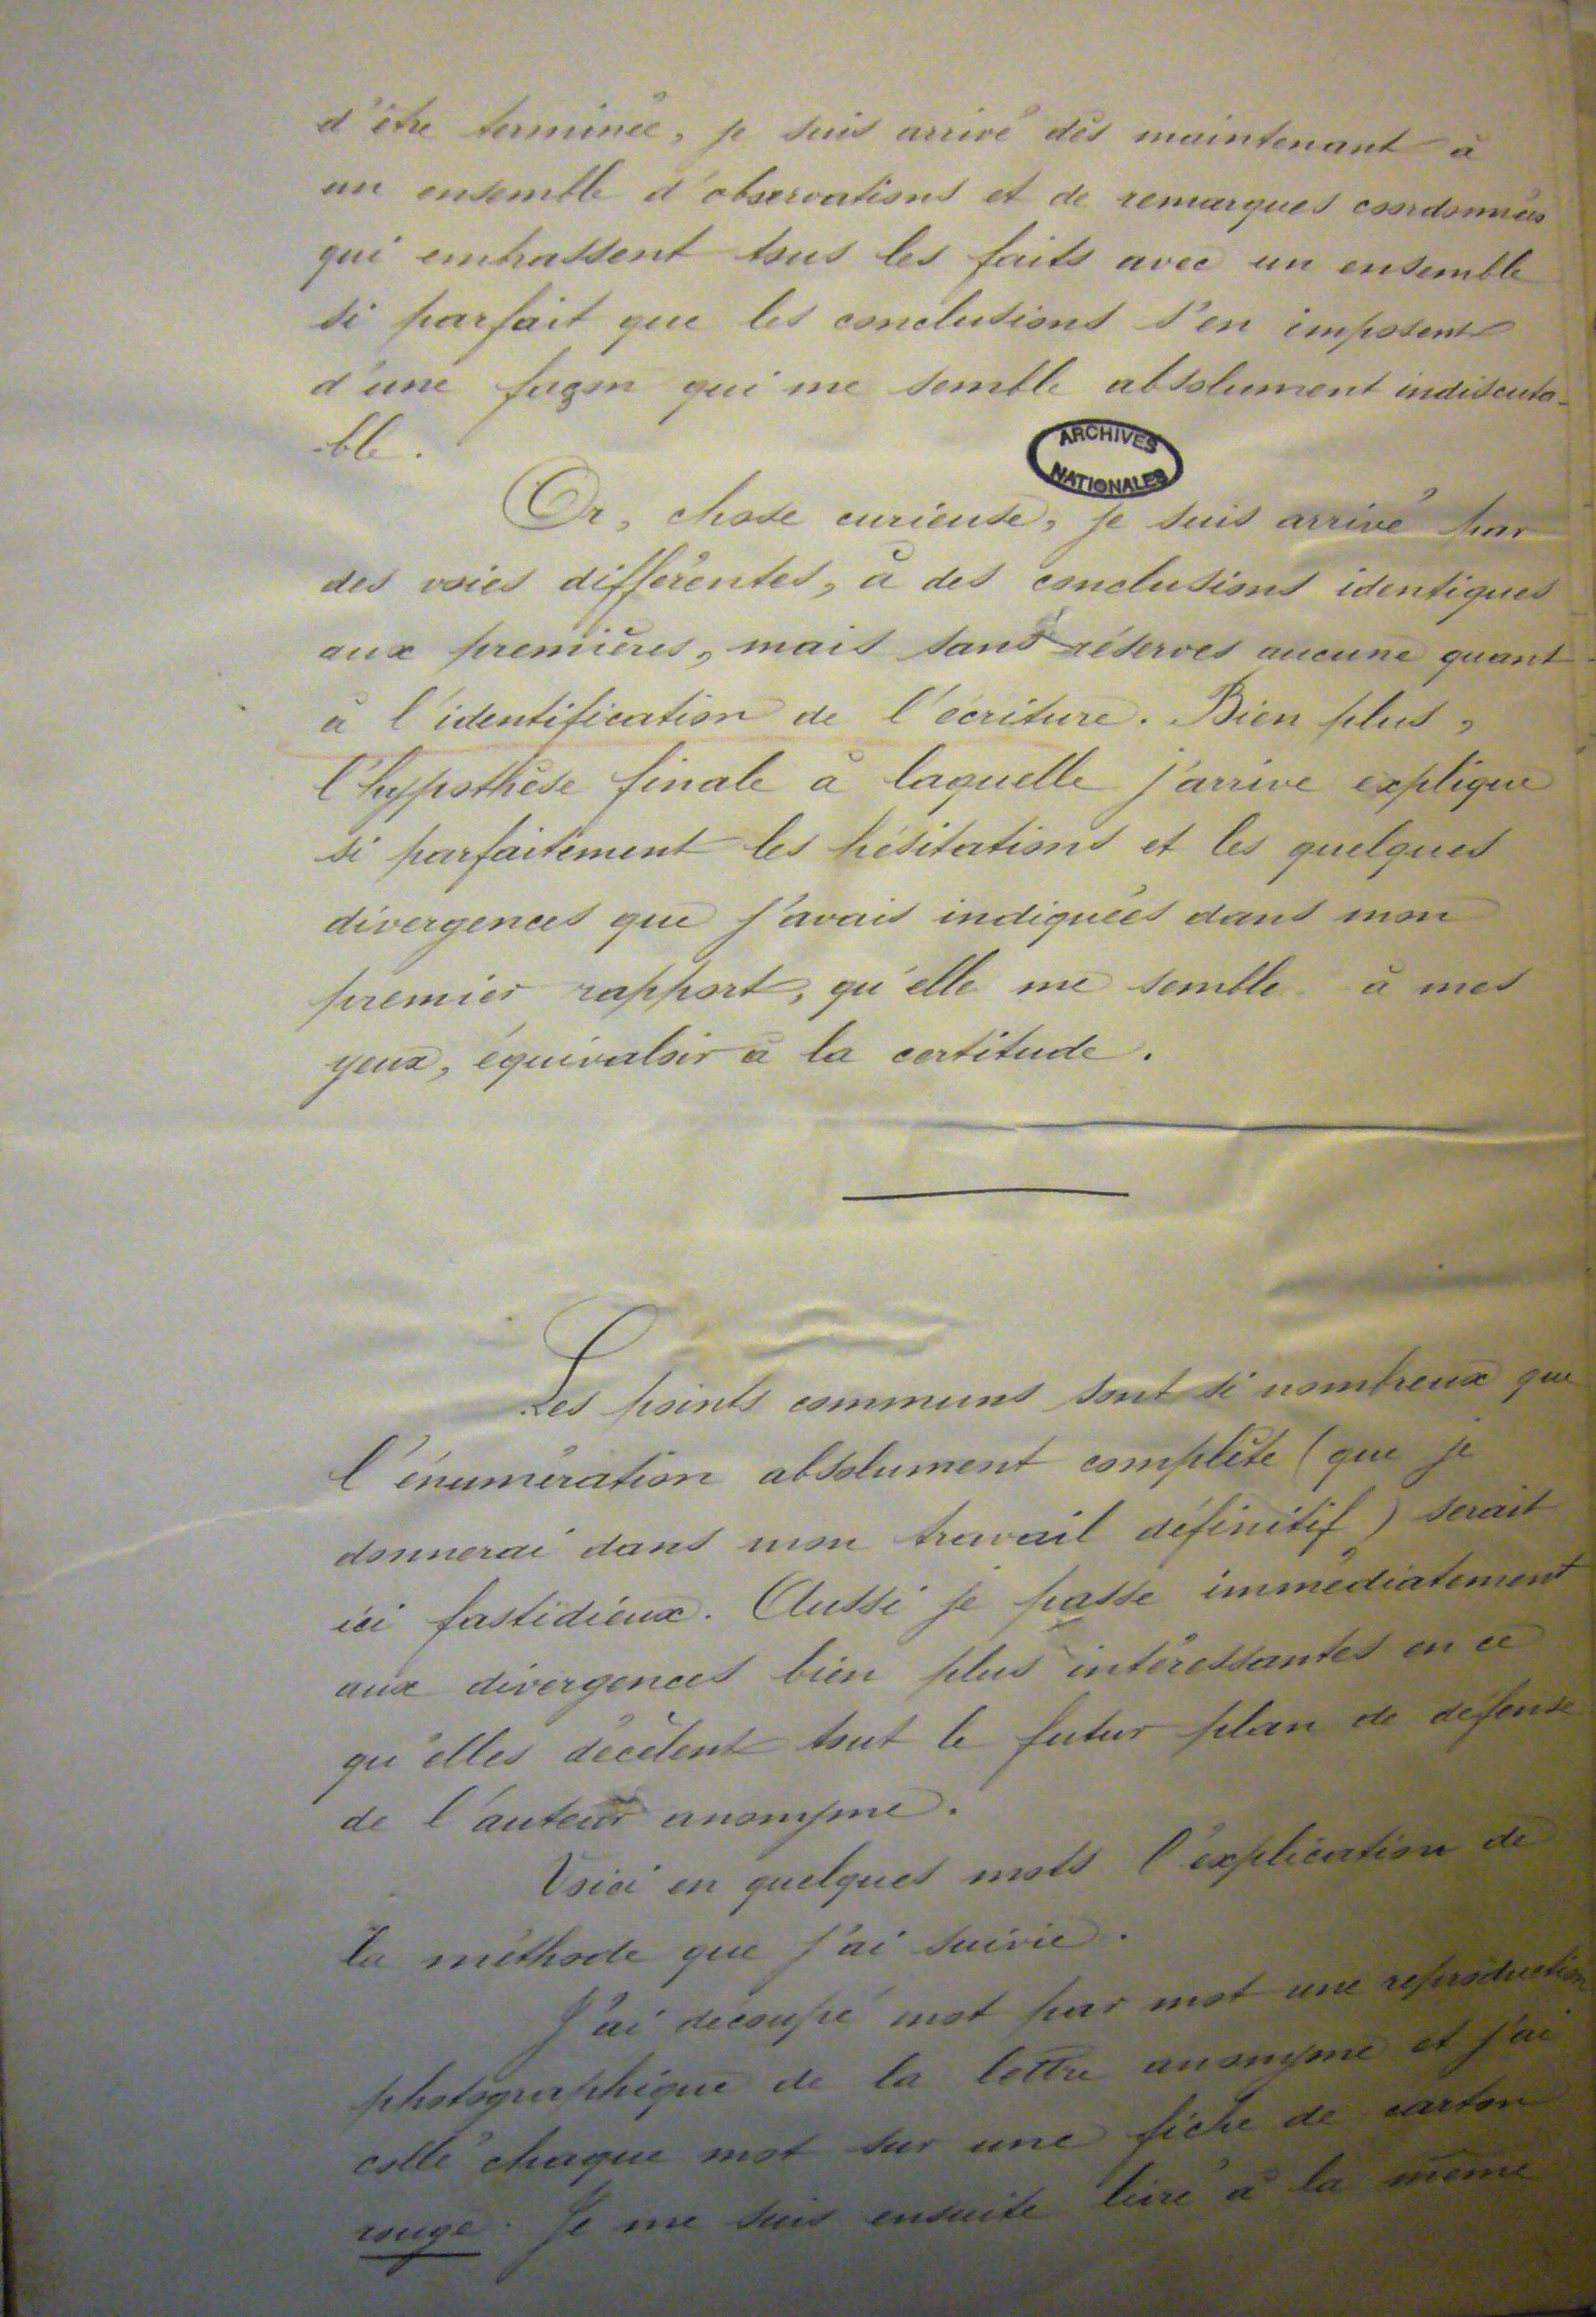 d'être terminée, je suis arrivé dès maintenant à
un ensemble d'observations et de remarques coordonnées
qui embrassent tous les faits avec un ensemble
si parfait que les conclusions s'en imposent
d'une façon qui me semble absolument indiscuta-
-ble.
ARCHIVES
NATIONALES
Or, chose curieuse, je suis arrivé par
des voies différentes, à des conclusions identiques
aux premières, mais sans réserves aucune quant
à l'identification de l'écriture. Bien plus,
l'hypothèse finale à laquelle j'arrive explique
si parfaitement les hésitations et les quelques
divergences que j'avais indiquées dans mon
premier rapport, qu'elle me semble à mes
yeux, équivaloir à la certitude.
Les points communs sont si nombreux que
l'énumération absolument complète (que je
donnerai dans mon travail définitif) serait
ici fastidieux. Aussi je passe immédiatement
aux divergences bien plus intéressantes en ce
qu'elles décèlent tout le futur plan de défense
de l'auteur anonyme.
Voici en quelques mots l'explication de
la méthode que j'ai suivie.
J'ai découpé mot par mot une reproduction
photographique de la lettre anonyme et j'ai
collé chaque mot sur une fiche de carton
rouge. Je me suis ensuite livré à la même